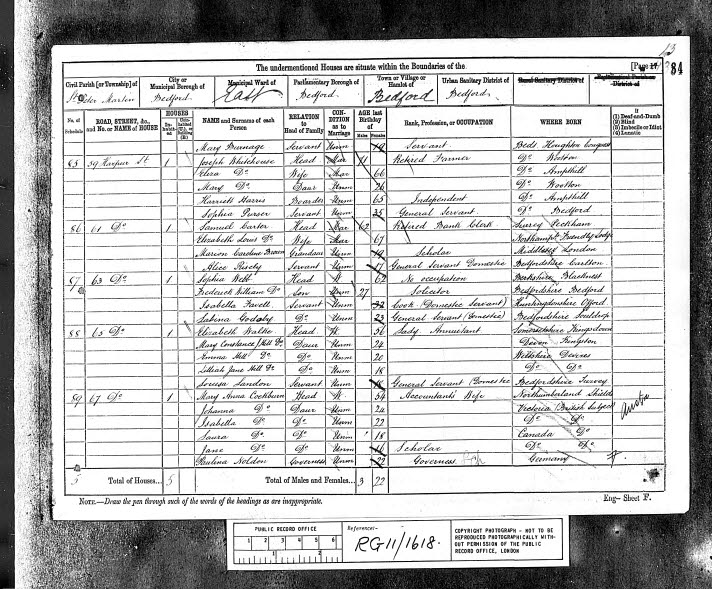 13
The undermentioned Houses are situate within the Boundaries of the
[Page 17
84
Civil Parish [or Township] of
City or Municipal Borough of
Municipal Ward of
Parliamentary Borough of
Town or Village or Hamlet of
Urban Sanitary District of
Rural Sanitary District of
Ecclesiastical Parish or District of
St Peter Martin
Bedford
East
Bedford
Bedford
Bedford
No. of Schedule
ROAD, STREET, &c., and No. or NAME of HOUSE
HOUSES
NAME and Surname of each Person
RELATION to Head of Family
CONDITION as to Marriage
AGE last Birthday of
Rank, Profession, or OCCUPATION
WHERE BORN
If (1) Deaf-and-Dumb (2) Blind (3) Imbecile or Idiot (4) Lunatic
Mary Burnage Servant Unm 19 Servant Beds Houghton Conquest
85 59 Harpur St 1 Joseph Whitehouse Head Mar 71 Retired Farmer Do Wootton
Eliza Do Wife Mar 66 Do Ampthill
Mary Do Daur Unm 26 Do Wootton
Harriett Harris Boarder Unm 65 Independent Do Ampthill
Sophia Purser Servant Unm 35 General Servant Do Bedford
86 61 Do 1 Samuel Carter Head Mar 62 Retired Bank Clerk Surrey Peckham
Elizabeth Do Wife Mar 67
Marion Caroline Brown Unm 19 Scholar Middlesex London
Alice Servant Unm 17 General Servant Domestic Bedfordshire Carlton
87 63 Do 1 Sophia Webb Head W 62 No occupation Berkshire
Frederick William Do Son Unm 27 Solicitor Bedfordshire Bedford
Isabella Favell Servant Unm 32 Cook (Domestic Servant) Huntingdonshire Offord
Sabina Godaby Do Unm 23 General Servant (Domestic) Bedfordshire Souldrop
88 65 Do 1 Elizabeth Head W 56 Lady Annuitant Somersetshire Kingsdown
Mary Constance Hill Do Daur Unm 24 Devon Kingston
Emma Hill Do Do Unm 20 Wiltshire Devizes
Lilleah Jane Hill Do Do Unm 18 Do Do
Louisa Landon Servant Unm 18 General Servant (Domestic Bedfordshire
89 67 Do 1 Mary Anna Cockburn Head 54 Accountants Wife Northumberland Shields
Johanna Do Daur Unm 24 Victoria (British Subject)
Isabella Do Do Unm 22 Do Do
Laura Do Do Unm 18 Canada Do
Jane Do Do Unm 16 Scholar Do Do
Paulina Noldon Governess Unm 22 Governess Germany
5 Total of Houses... 5 Total of Males and Females... 3 22
NOTE.—Draw the pen through such of the words of the headings as are inappropriate.
Eng— Sheet F.
PUBLIC RECORD OFFICE
1 2 3 4 5 6
1 2
Reference:-
RG11/1618.
COPYRIGHT PHOTOGRAPH - NOT TO BE REPRODUCED PHOTOGRAPHICALLY WITHOUT PERMISSION OF THE PUBLIC RECORD OFFICE, LONDON